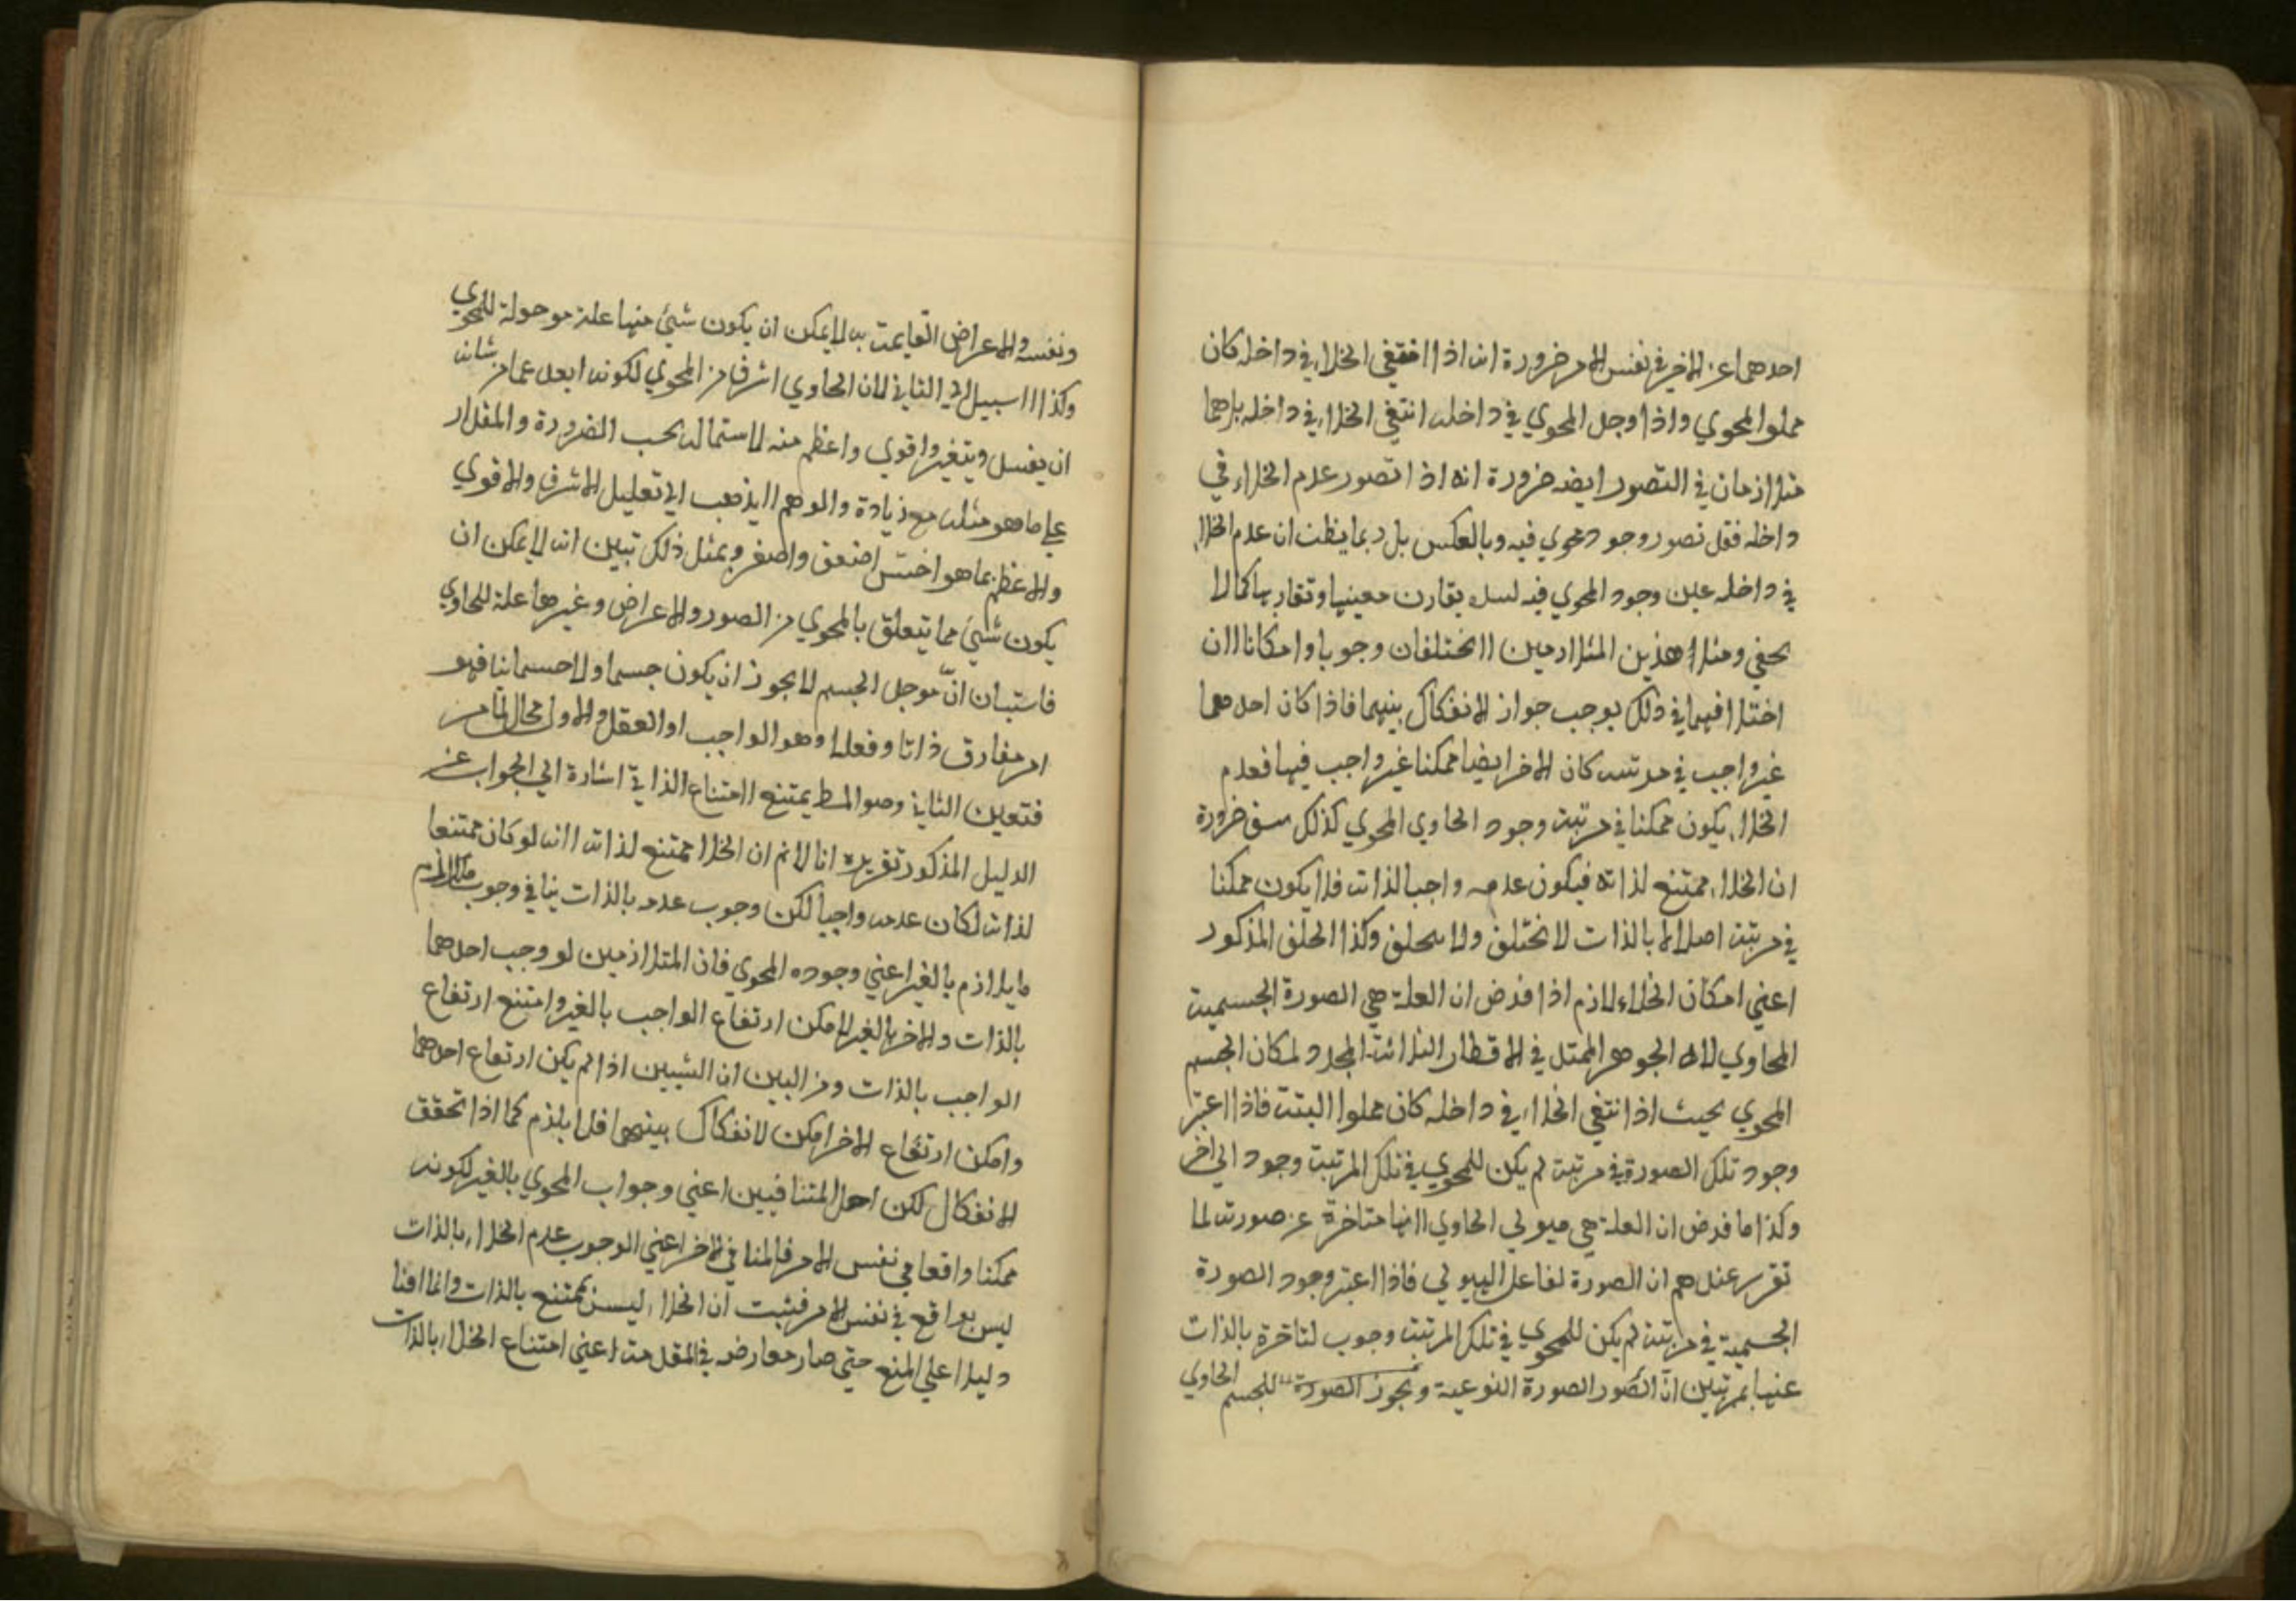 احدهما عن الاخر في نفس الامر ضرورة انه اذا انتفي الخلاء في داخله كان
مملوا لمحوي واذا وجد المحوي في داخله انتفي الخلاء في داخله بل هما
متلازمان في التصور ايضه ضرورة انه اذا تصور عدم الخلاء في
داخله فقد تصور وجود محوي فيه وبالعكس بل ربما يظن ان عدم الخلاء
في داخله عين وجود المحوي فيه يقارن معينها وتقاربها كما لا
يخفي ومثل هذين المتلازمين لا تختلفان وجوبا وامكانا لان
اختلافهما في ذلك يوجب جواز الانفكاك بينهما فاذا كان احدهما
غير واجب في مرتبه كان الاخر ايضا ممكنا غير واجب فيها فعدم
الخلاء يكون ممكنا في مرتبة وجود الحاوي المحوي كذلك ضرورة
ان الخلاء ممتنع لذاته فيكون عدمه واجبا لذاته فلا يكون ممكنا
في مرتبة اصلا لما بالذات لا تختلف ولا وكذا الخلف المذكور
اعني امكان الخلاء لازم اذا فرض ان العلة هي الصورة الجسمية
المحاوي لانه الجوهر الممتد في الاقطار الثلاثة المحدد لمكان الجسم
المحوي بحيث اذا انتفي الخلاء في داخله كان مملوا البتة فاذا اعتبر
وجود تلك الصورة في مرتبة لم يكن للمحوي في تلك المرتبة وجود الي اخر
وكذا ما فرض ان العلة هي هيولي الحاوي لانها متاخرة عن صورته لما
تقرر عندهم ان الصورة لفاعل الهيولي فاذا اعتبر وجود الصورة
الجسمية في مرتبة لم يكن للمحوي في تلك المرتبة وجوب لتاخره بالذات
عنها بمرتبتين ان الصور الصورة النوعية وتجوز الصورة للجسم الحاوي
ونفسه والاعراض القايمة به لا يمكن ان يكون شئ منها علة موجدة للمحوي
وكذا لا سبيل الي الثاني لان الحاوي اشرف من المحوي لكونه ابعد عما من شانه
ان يفسد ويتغير واقوي واعظم منه لاشتماله بحسب الضرورة والمقدار
علي ما هو مثله مع زيادة والوهم لا يذهب الي تعليل الاشرف والاقوي
والاعظم بما هو اخس اضعف واصغر وبمثل ذلك تبين انه لا يمكن ان
يكون شئ مما يتعلق بالمحوي من الصور والاعراض وغيرها علة للحاوي
فاستبان ان موجد الجسم لا يجوز ان يكون جسما ولا جسمانيا فهو
امر مفارق ذاتا وفعلا وهو الواجب او العقل والاول محال لما مر
فتعين الثاني وهو المط يمتنع الامتناع الذاتي اشارة الي الجواب عن
الدليل المذكور تقريره انا لا نم ان الخلا ممتنع لذاته لانه لو كان ممتنعا
لذاته لكان عدمه واجبا لكن وجوب عدمه بالذات ينافي وجوب
ما يلازم بالغير اعني وجوده المحوي فان المتلازمين لو وجب احدهما
بالذات والاخر بالغير لامكن ارتفاع الواجب بالغير وامتنع ارتفاع
الواجب بالذات ومن البين ان الشيين اذا لم يكن ارتفاع احدهما
وامكن ارتفاع الاخر امكن الانفكاك بينهما فلا يلزم كما اذا تحقق
الانفكال لكن احد المتنافيين اعني وجواب المحوي بالغير لكونه
ممكنا واقعا في نفس الامر فالمنافي الاخر اعني الوجوب عدم الخلاء بالذات
ليس بواقع في نفس الامر فثبت ان الخلاء ليس بممتنع بالذات وانما اقنا
دليلا علي المنع حتي صار معارضه في المقدمة اعني امتناع الخلاء بالذات